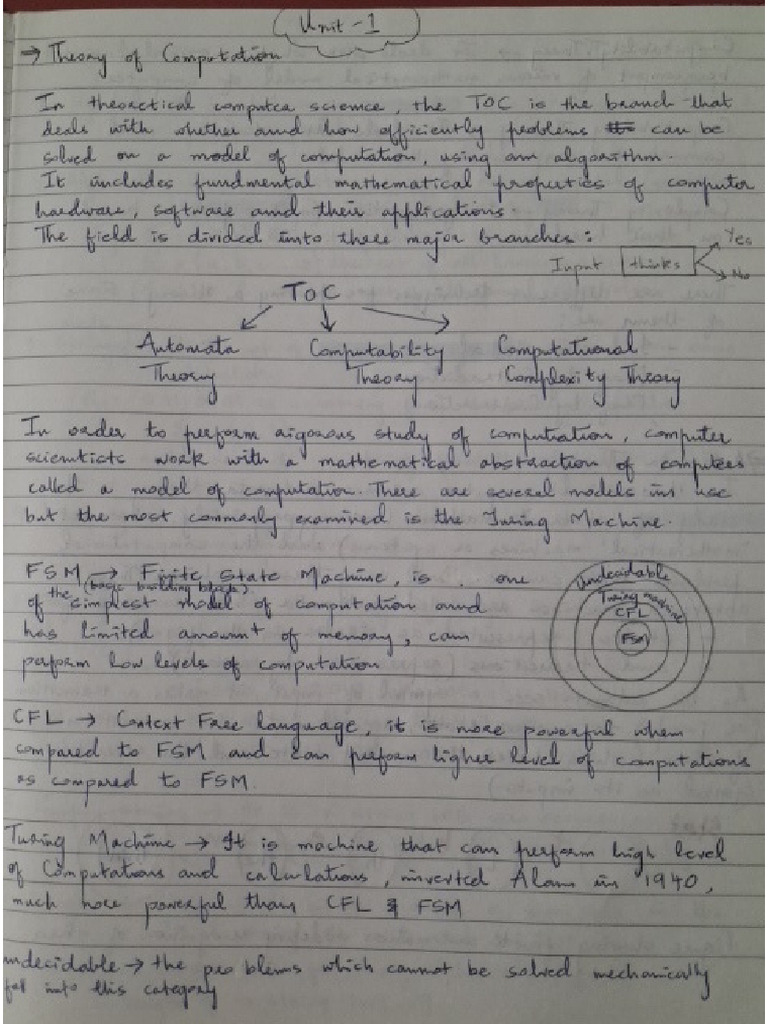 Unit - 1
→ Theory of Computation
In theoretical computer science, the TOC is the branch that
deals with whether and how efficiently problems can be
solved on a model of computation, using an algorithm.
It includes fundmental mathematical properties of computer
hardware, software and their applications.
The field is divided into three major branches :
Input thinks Yes
No
TOC
Automata Computability Computational
Theory Theory Complexity Theory
In order to perform rigorous study of computration, computer
scienticts work with a mathematical abstraction of computers
called a model of computation. There are several models in use
but the most commonly examined is the Turing Machine.
FSM → Finite State Machine, is one
(basic building block)
of the simplest model of computation and
has limited amount of memory, can
perform low levels of computation
undecidable
Turing machine
CFL
FSM
CFL → Context Free language, it is more powerful when
compared to FSM and can perform higher level of computations
as compared to FSM.
Turing Machine → It is machine that can perform high level
of Computations and calculations, inverted Alan in 1940,
much more powerful than CFL & FSM
undecidable → the problems which cannot be solved mechanically
fal into this category